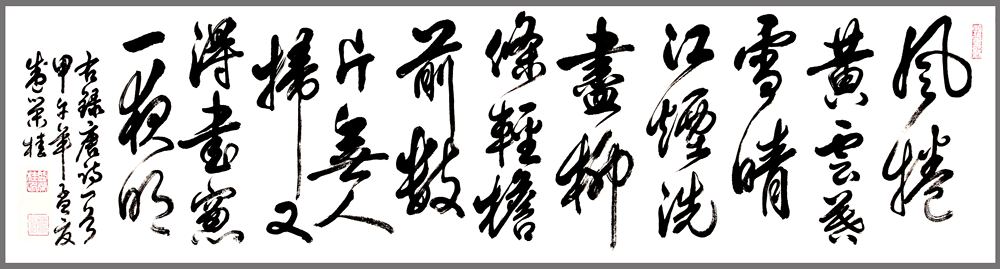 風捲
黃雲暮
雪晴
江煙洗
盡柳
條輕檐
前數
片無人
掃又
得書窻
一夜明
右録唐詩一首
甲午年孟夏
榮桂